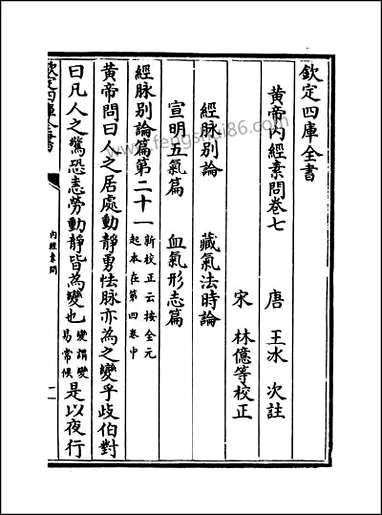 欽定四庫全書
黃帝内經素問卷七
唐 王冰 次註
宋 林億等校正
經脉別論 藏氣法時論
宣明五氣篇 血氣形志篇
經脉別論篇第二十一 新校正云按全元起本在第四卷中
黃帝問曰人之居處動静勇怯脉亦為之變乎歧伯對
曰凡人之驚恐恚勞動静皆為變也 變謂變易常候 是以夜行
欽定四庫全書
内經素問